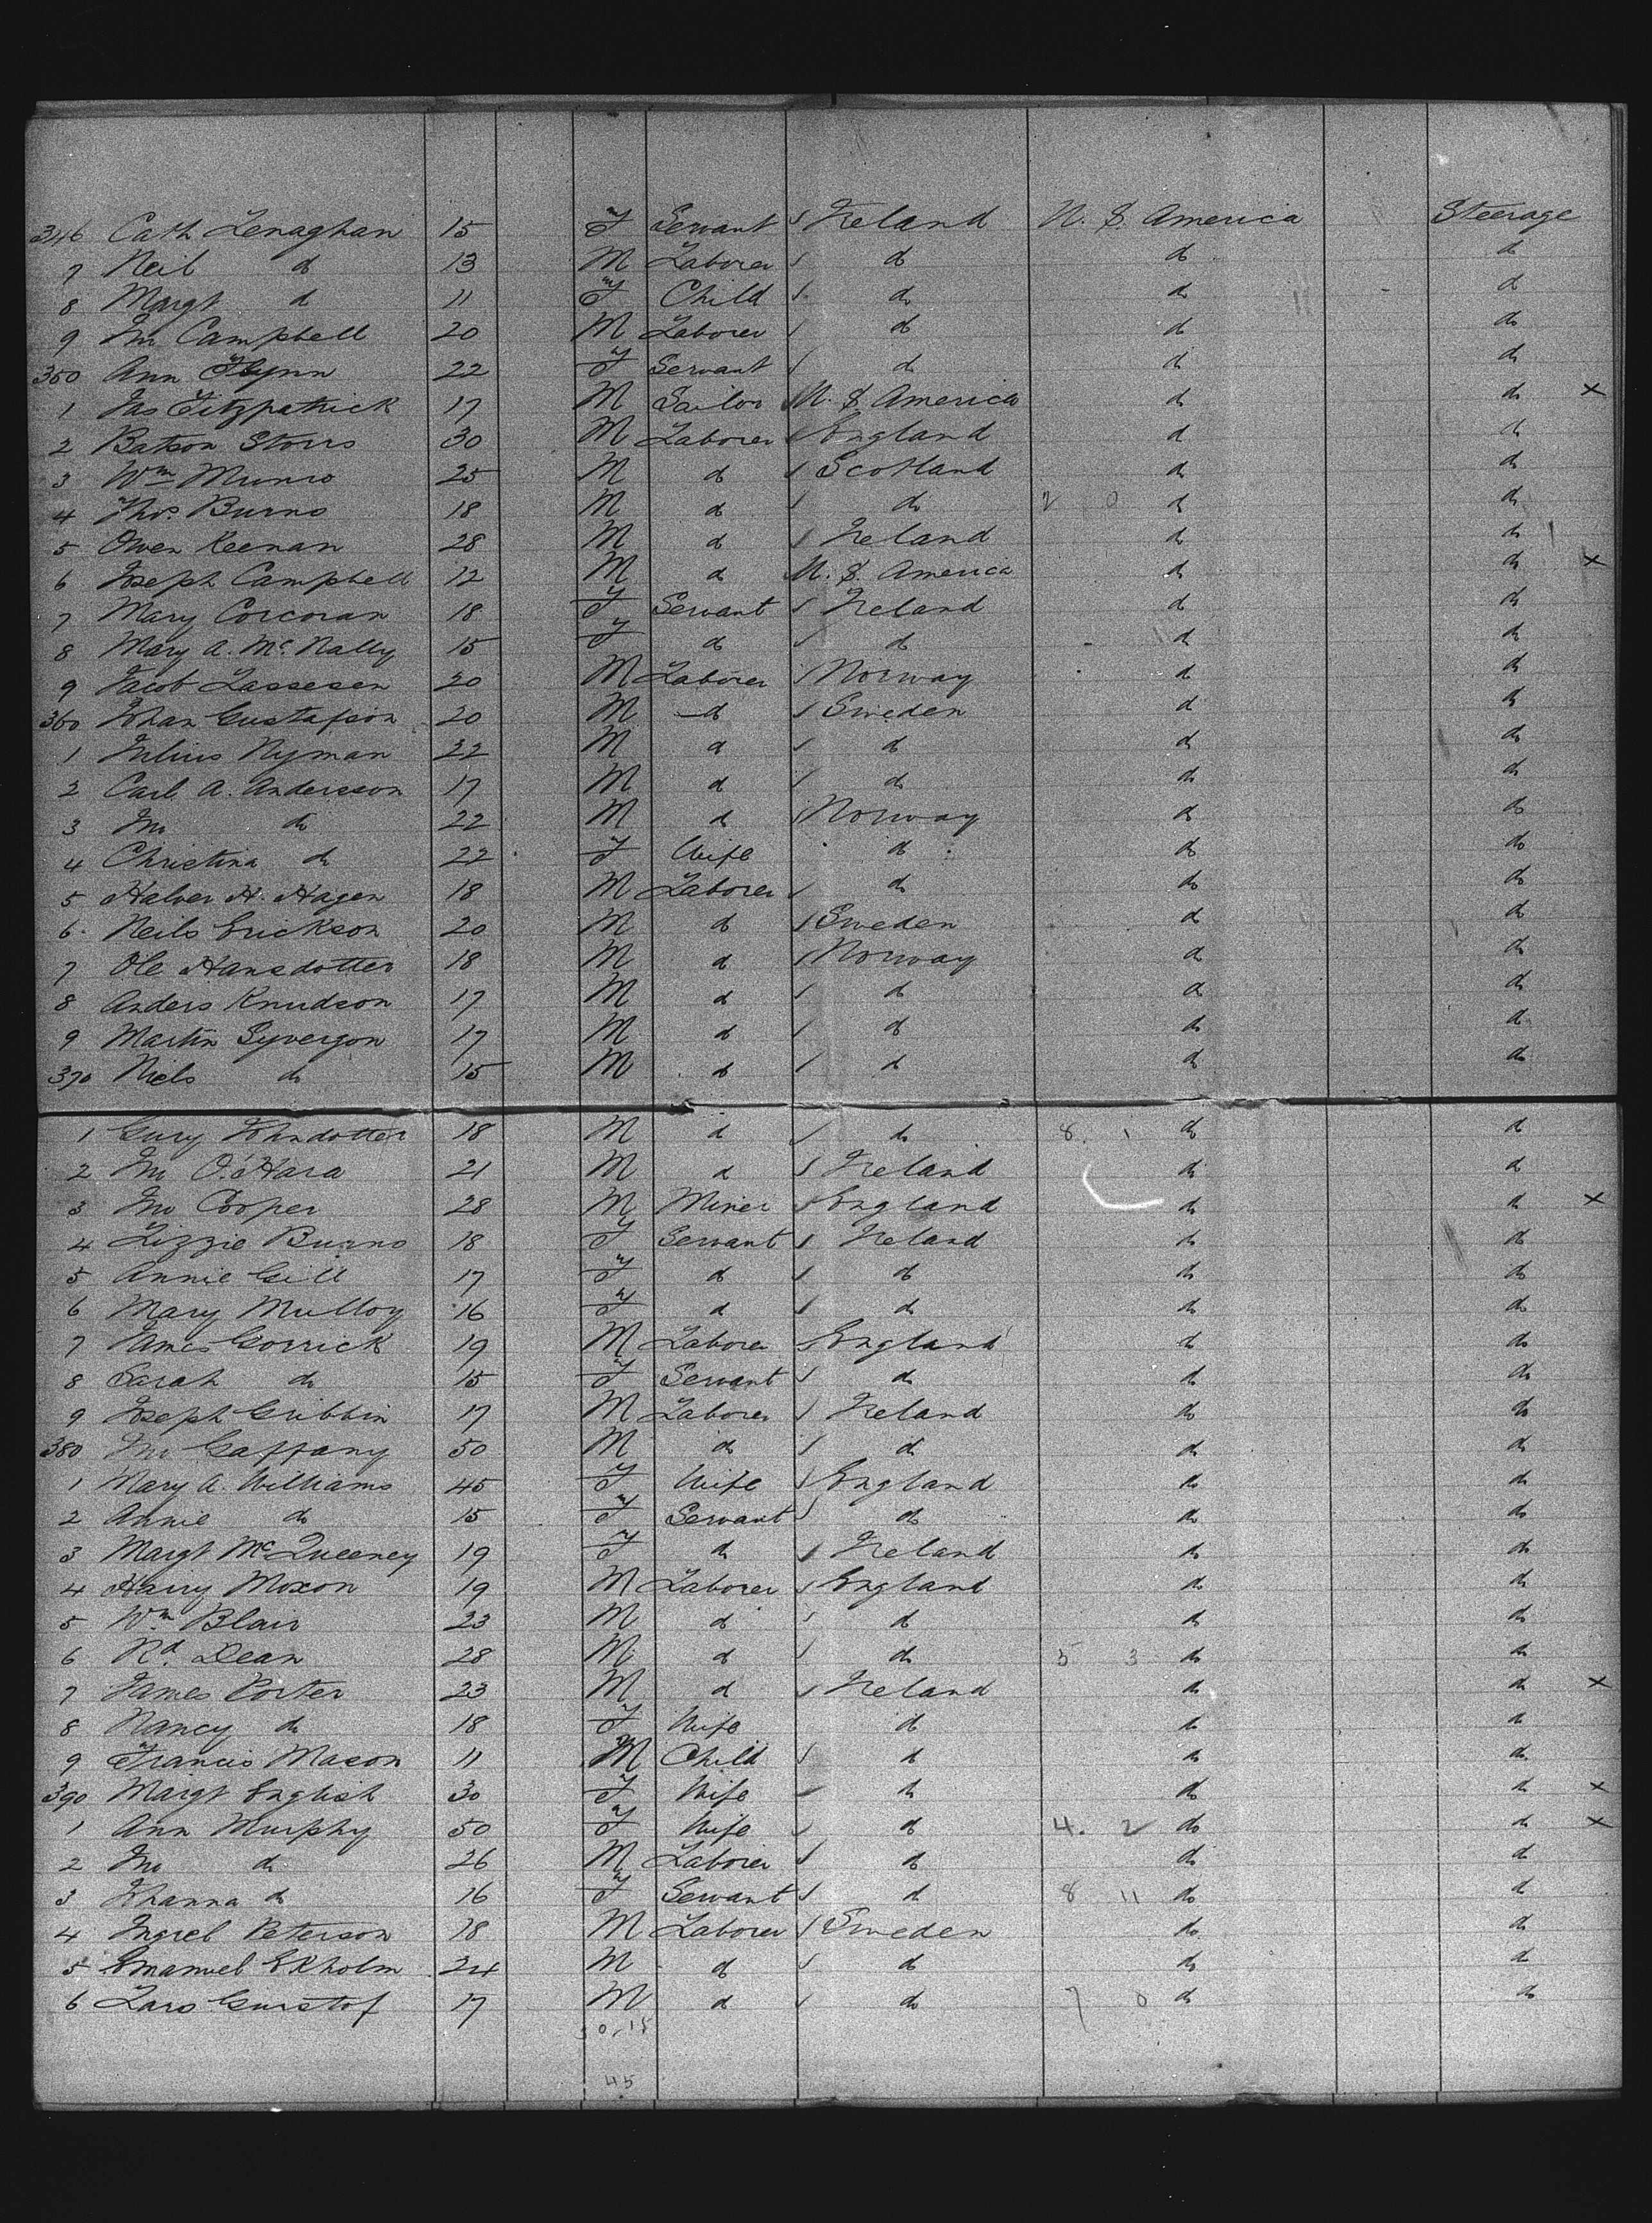 346 Cath Lenaghan 15 F Servant Ireland U. S. America Steerage
7 Neil do 13 M Laborer do do do
8 Margt do 11 F Child do do do
9 Jno Campbell 20 M Laborer do do do
350 Ann Flynn 22 F Servant do do do
1 Jas Fitzpatrick 17 M Sailor U. S. America do do x
2 Batson Storrs 30 M Laborer England do do
3 Wm Munro 25 M do Scotland do do
4 Thos. Burns 18 M do do 2 0 do do
5 Owen Keenan 28 M do Ireland do do
6 Joseph Campbell 12 M do U. S. America do do x
7 Mary Corcoran 18 F Servant Ireland do do
8 Mary A. McNally 15 F do do do do
9 Jacob Lassesen 20 M Laborer Norway do do
360 Johan Gustafson 20 M do Sweden do do
1 Julius Nyman 22 M do do do do
2 Carl A. Andersson 17 M do do do do
3 Jno do 22 M do Norway do do
4 Christina do 22 F Wife do do do
5 Halver H. Hagen 18 M Laborer do do do
6 Neils Erickson 20 M do Sweden do do
7 Ole Hansdotter 18 M do Norway do do
8 Anders Knudson 17 M do do do do
9 Martin Syverson 17 M do do do do
370 Niels do 15 M do do do do
1 Gury Johndotter 18 M do do 8. 1 do do
2 Jno O'Hara 21 M do Ireland do do
3 Jno Cooper 28 M Miner England do do x
4 Lizzie Burns 18 F Servant Ireland do do
5 Annie Gill 17 F do do do do
6 Mary Mulloy 16 F do do do do
7 James Gorrick 19 M Laborer England do do
8 Sarah do 15 F Servant do do do
9 Joseph Gribbin 17 M Laborer Ireland do do
380 Jno Gaffany 50 M do do do do
1 Mary A. Williams 45 F Wife England do do
2 Annie do 15 F Servant do do do
3 Margt McQueeney 19 F do Ireland do do
4 Harry Moxon 19 M Laborer England do do
5 Wm Blair 23 M do do do do
6 Rd. Dean 28 M do do 5 3 do do
7 James Porter 23 M do Ireland do do x
8 Nancy do 18 F Wife do do do
9 Francis Mason 11 M Child do do do
390 Margt English 30 F Wife do do do x
1 Ann Murphy 50 F Wife do 4. 2 do do x
2 Jno do 26 M Laborer do do do
3 Johanna do 16 F Servant do 8 11 do do
4 Ingreb Peterson 18 M Laborer Sweden do do
5 Emanuel Ekholm 24 M do do do do
6 Lars Gustof 17 M do do 7 0 do do
45